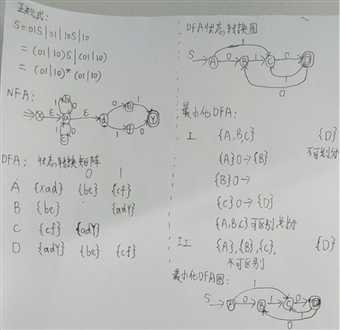 正规式:
S=01S|01|10S|10
=(01|10)S|(01|10)
=(01|10)*(01|10)
NFA:
X ε ε Y
DFA: 状态转换矩阵
0 1
A {xad} {be} {cf}
B {be} {adY}
C {cf} {adY}
D {adY} {be} {cf}
DFA状态转换图
S A B C D
最小化DFA:
I {A,B,C} {D}
{A}0→{B} 不可划分
{B}0→
{C}0→{D}
{A,B,C}可区别,
II {A},{B},{C}, {D}
不可区别
最小化DFA图:
S A B C D